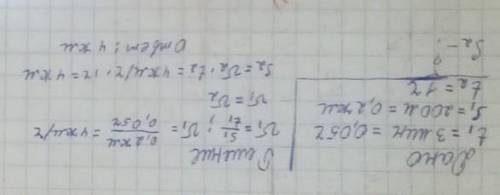 Дано
t₁ = 3 мин = 0,05 г
S₁ = 200 м = 0,2 км
t₂ = 1 г
S₂ - ?
Решение
V₁ = S₁/t₁ ; V₁ = 0,2 км/0,05 г = 4 км/г
V₁ = V₂
S₂ = V₂ · t₂ = 4 км/г · 1г = 4 км
Ответ: 4 км